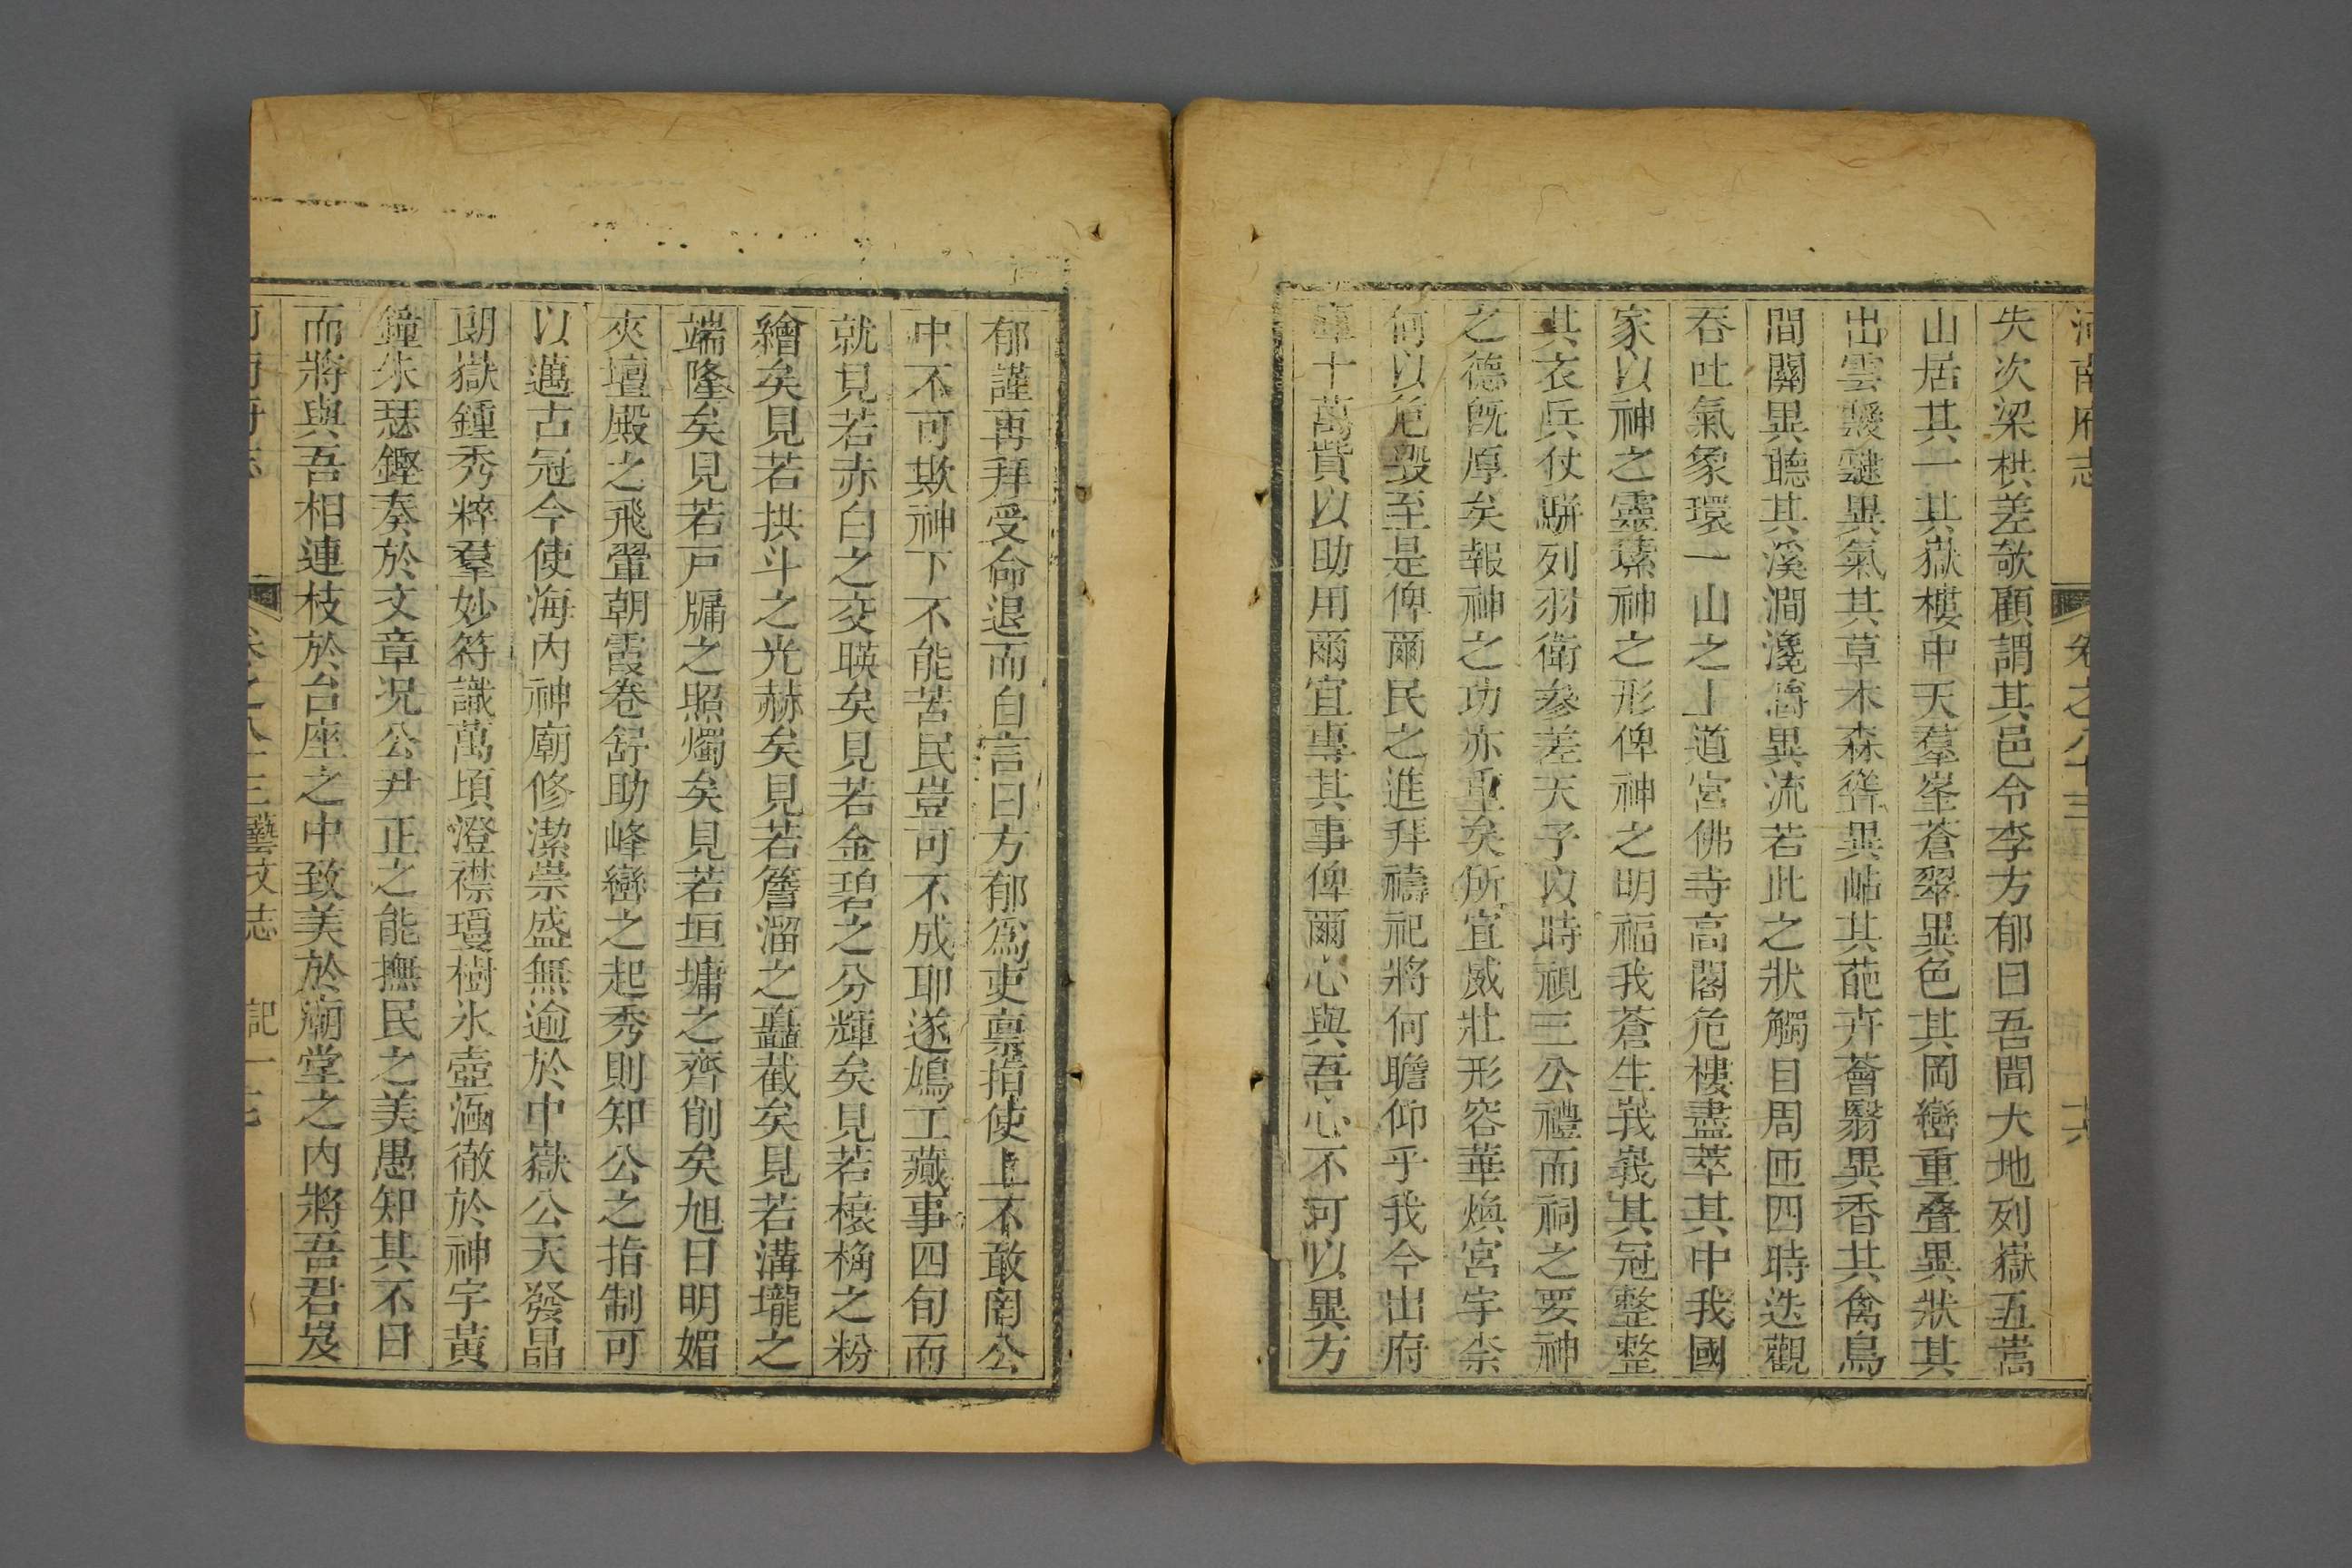 河南府志 卷之八十三 十六
失次梁栱差欹顧謂其邑令李方郁曰吾聞大地列嶽五嵩
山居其一其嶽樓中天羣峯蒼翠異色其岡巒重叠異狀其
出雲靉靆異氣其草木森聳異岵其葩卉薈翳異香其禽鳥
間關異聽其溪澗瀺灂異流若此之狀觸目周匝四時迭觀
吞吐氣象環一山之上道宮佛寺高閣危樓盡萃其中我國
家以神之靈璓神之形俾神之明福我蒼生峩峩其冠整整
其衣兵仗駢列羽衛參差天子以時視三公禮而祠之要神
之德既厚矣報神之功亦重矣所宜威壯形容華煥宮宇柰
何以危毀至是俾爾民之進拜禱祀將何瞻仰乎我今出府
庫十萬貲以助用爾宜專其事俾爾心與吾心不可以異方
郁謹再拜受命退而自言曰方郁爲吏禀指使上不敢罔公
中不可欺神下不能苦民豈可不成耶遂鳩工藏事四旬而
就見若赤白之交暎矣見若金碧之分輝矣見若榱桷之粉
繪矣見若拱斗之光赫矣見若簷溜之矗截矣見若溝壠之
端隆矣見若戸牖之照燭矣見若垣墉之齊削矣旭日明媚
夾壇殿之飛翬朝霞卷舒助峰巒之起秀則知公之指制可
以邁古冠今使海內神廟修潔崇盛無逾於中嶽公天發晶
朗嶽鍾秀粹羣妙符識萬頃澄襟瓊樹氷壺涵徹於神宇黃
鐘朱瑟鏗奏於文章况公尹正之能撫民之美愚知其不日
而將與吾相連枝於台座之中致美於廟堂之內將吾君及
河南府志 卷之八十三藝文志 記一 七